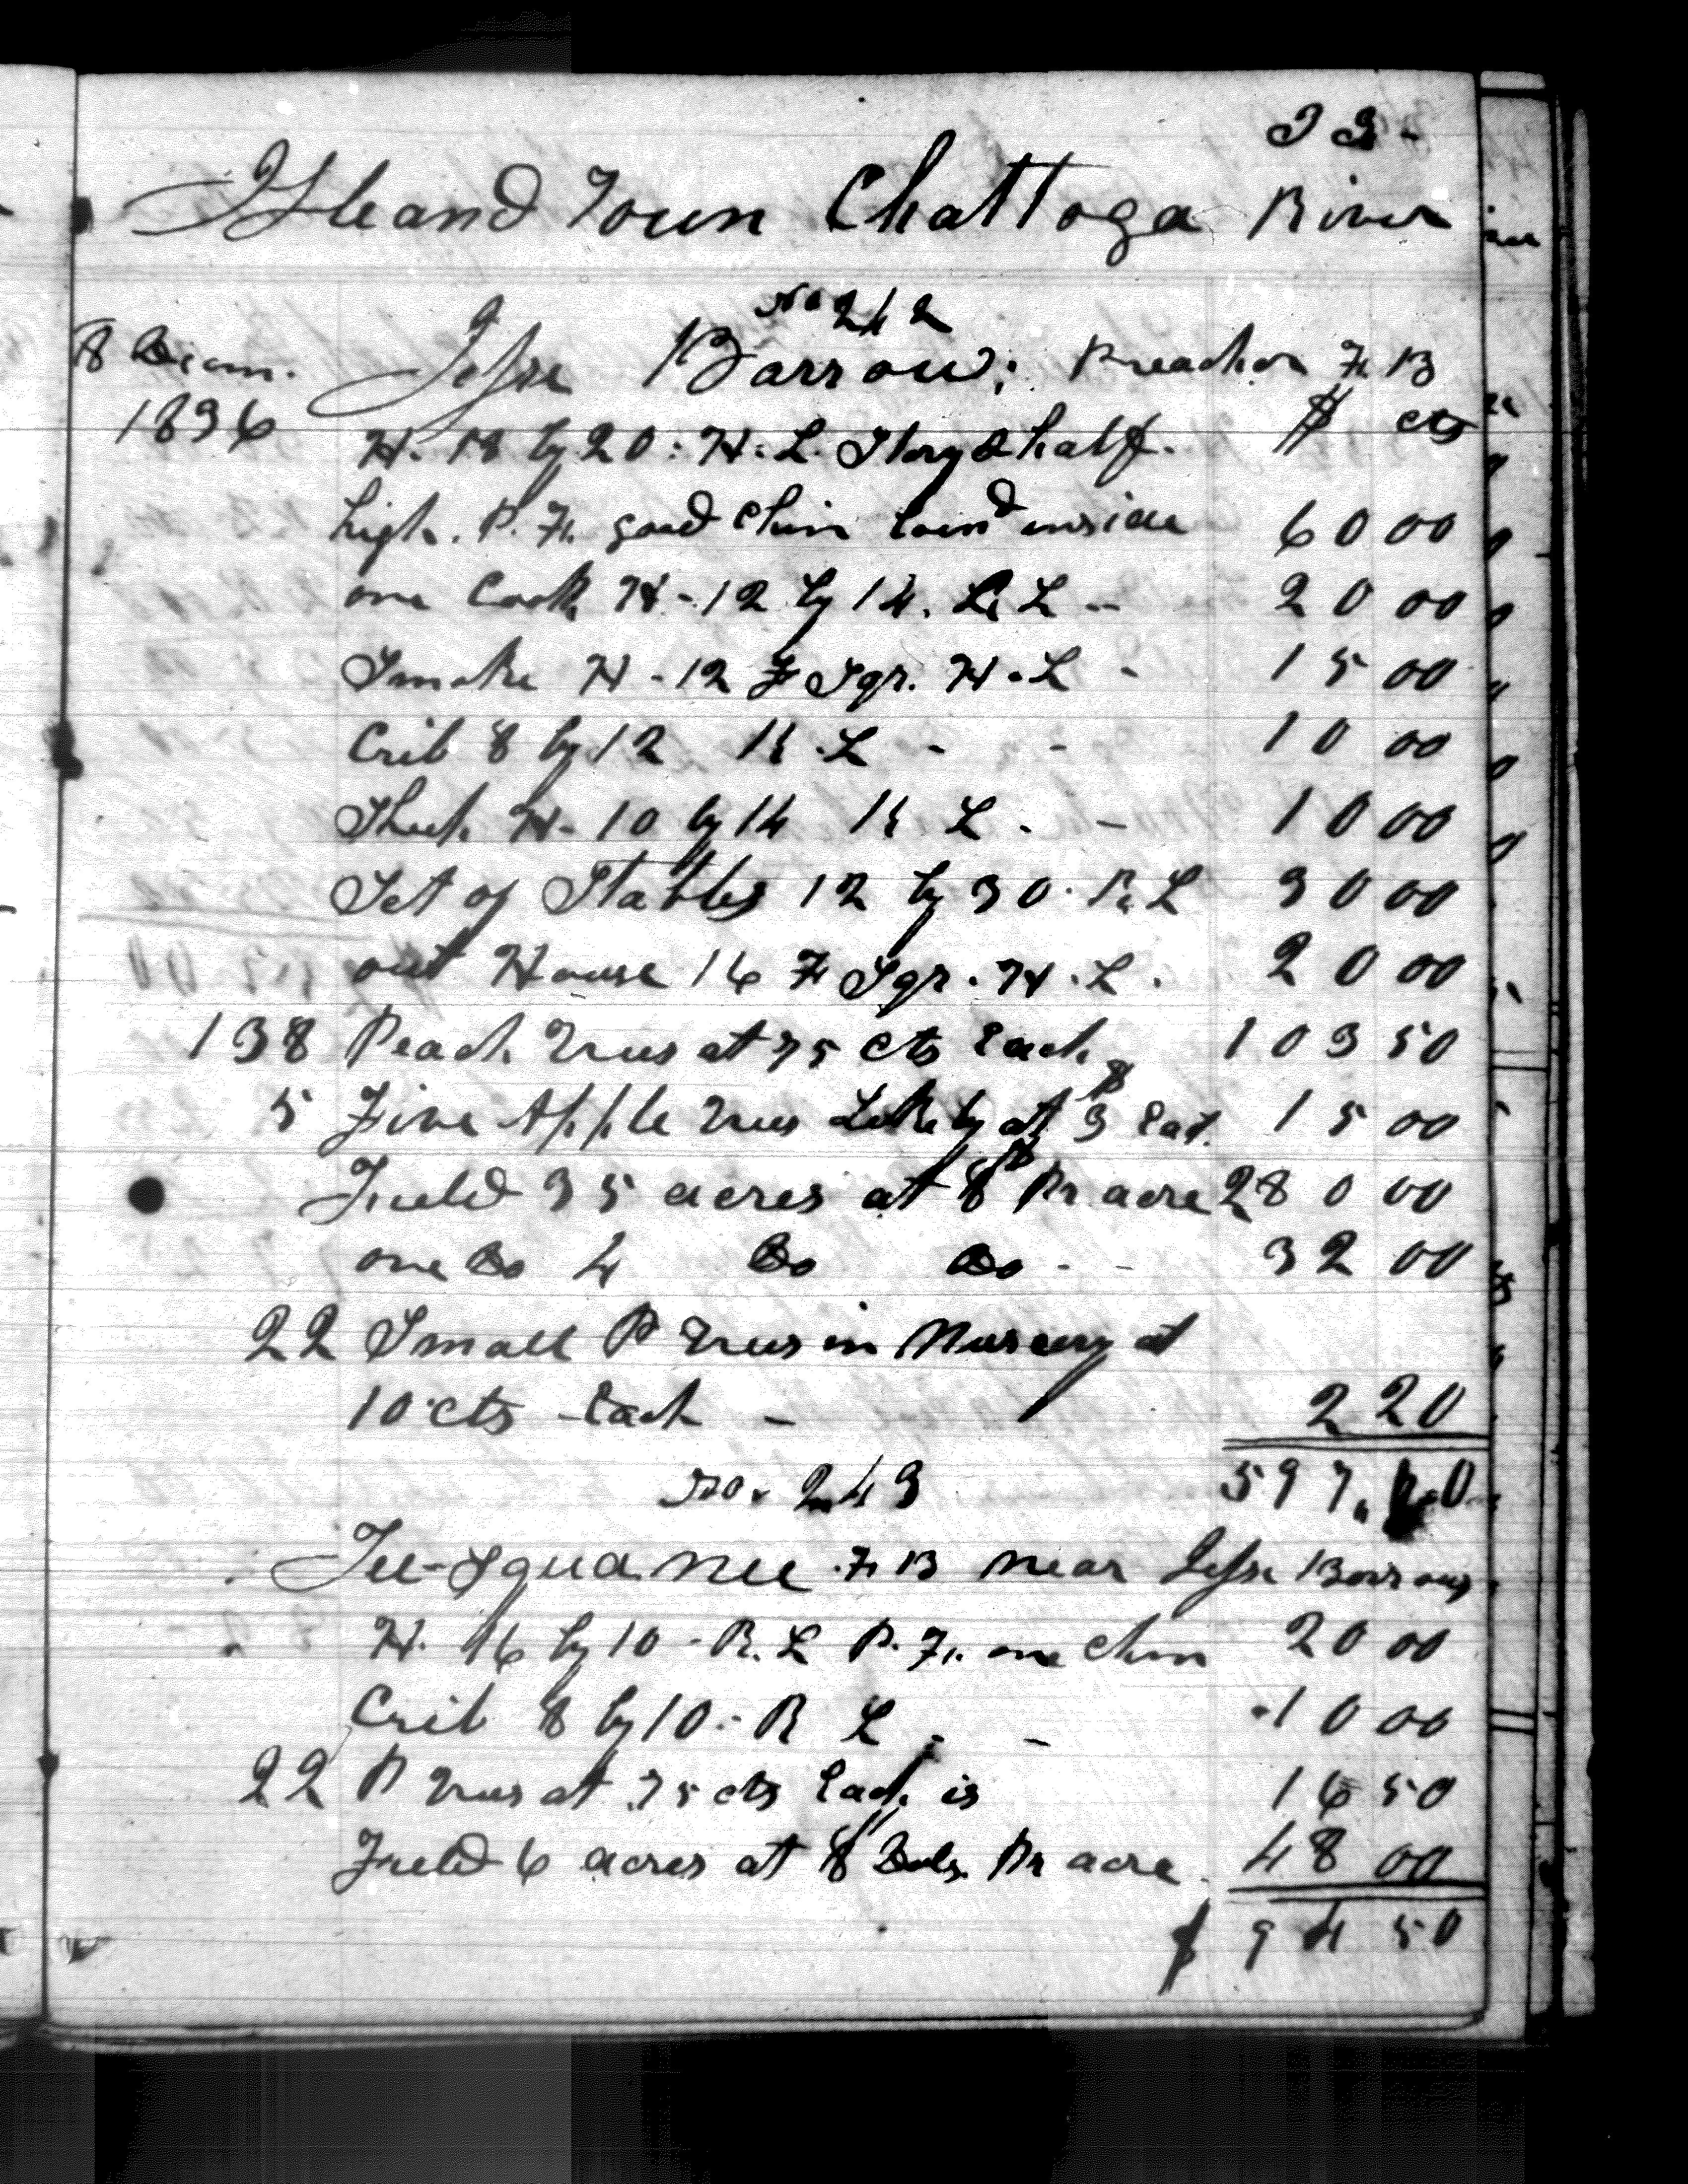 33-
Island Town Chattoga River
No 242
8 Decem. Jesse Barrow; Preacher F B
1836 $ cts
H. 18 by 20: H. L. Story & half.
high. P. F. good Chim loind inside 60 00
one Cook H - 12 by 14. R. L - 20 00
Smoke H - 12 F Sqr. H. L - 15 00
Crib 8 by 12 R. L - - 10 00
Shuck H - 10 by 14 R L. - 10 00
Set of Stables 12 by 30. R. L 30 00
out House 16 F Sqr. H. L. 20 00
138 Peach Trees at 75 cts Each 103 50
5 Fine Apple Trees Likely at $3 Each. 15 00
Field 35 acres at 8$ Pr acre 280 00
one Do 4 Do Do - - 32 00
22 Small P Trees in Nursery at
10 cts Each - 2 20
No. 243 597. 0
Tee-squa nee. F B near Jesse Barrows
H. 16 by 10 - R. L P. F. one Chim 20 00
Crib 8 by 10 - R L. - 10 00
22 P Trees at .75 cts Each is 16 50
Field 6 acres at 8 Dols. Pr acre. 48 00
$ 94 50